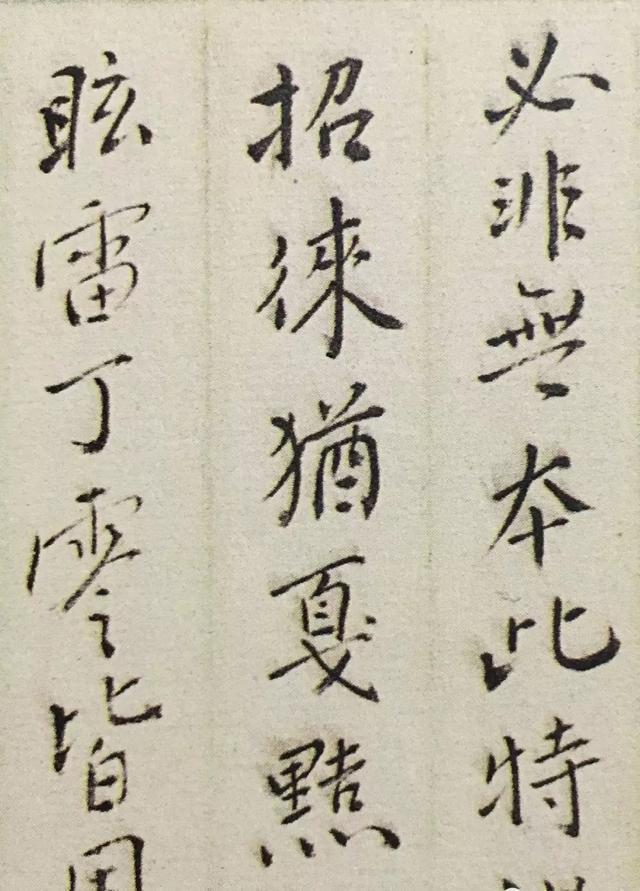 必非無本此特
招徠猶戛黠
眩雷丁零皆用